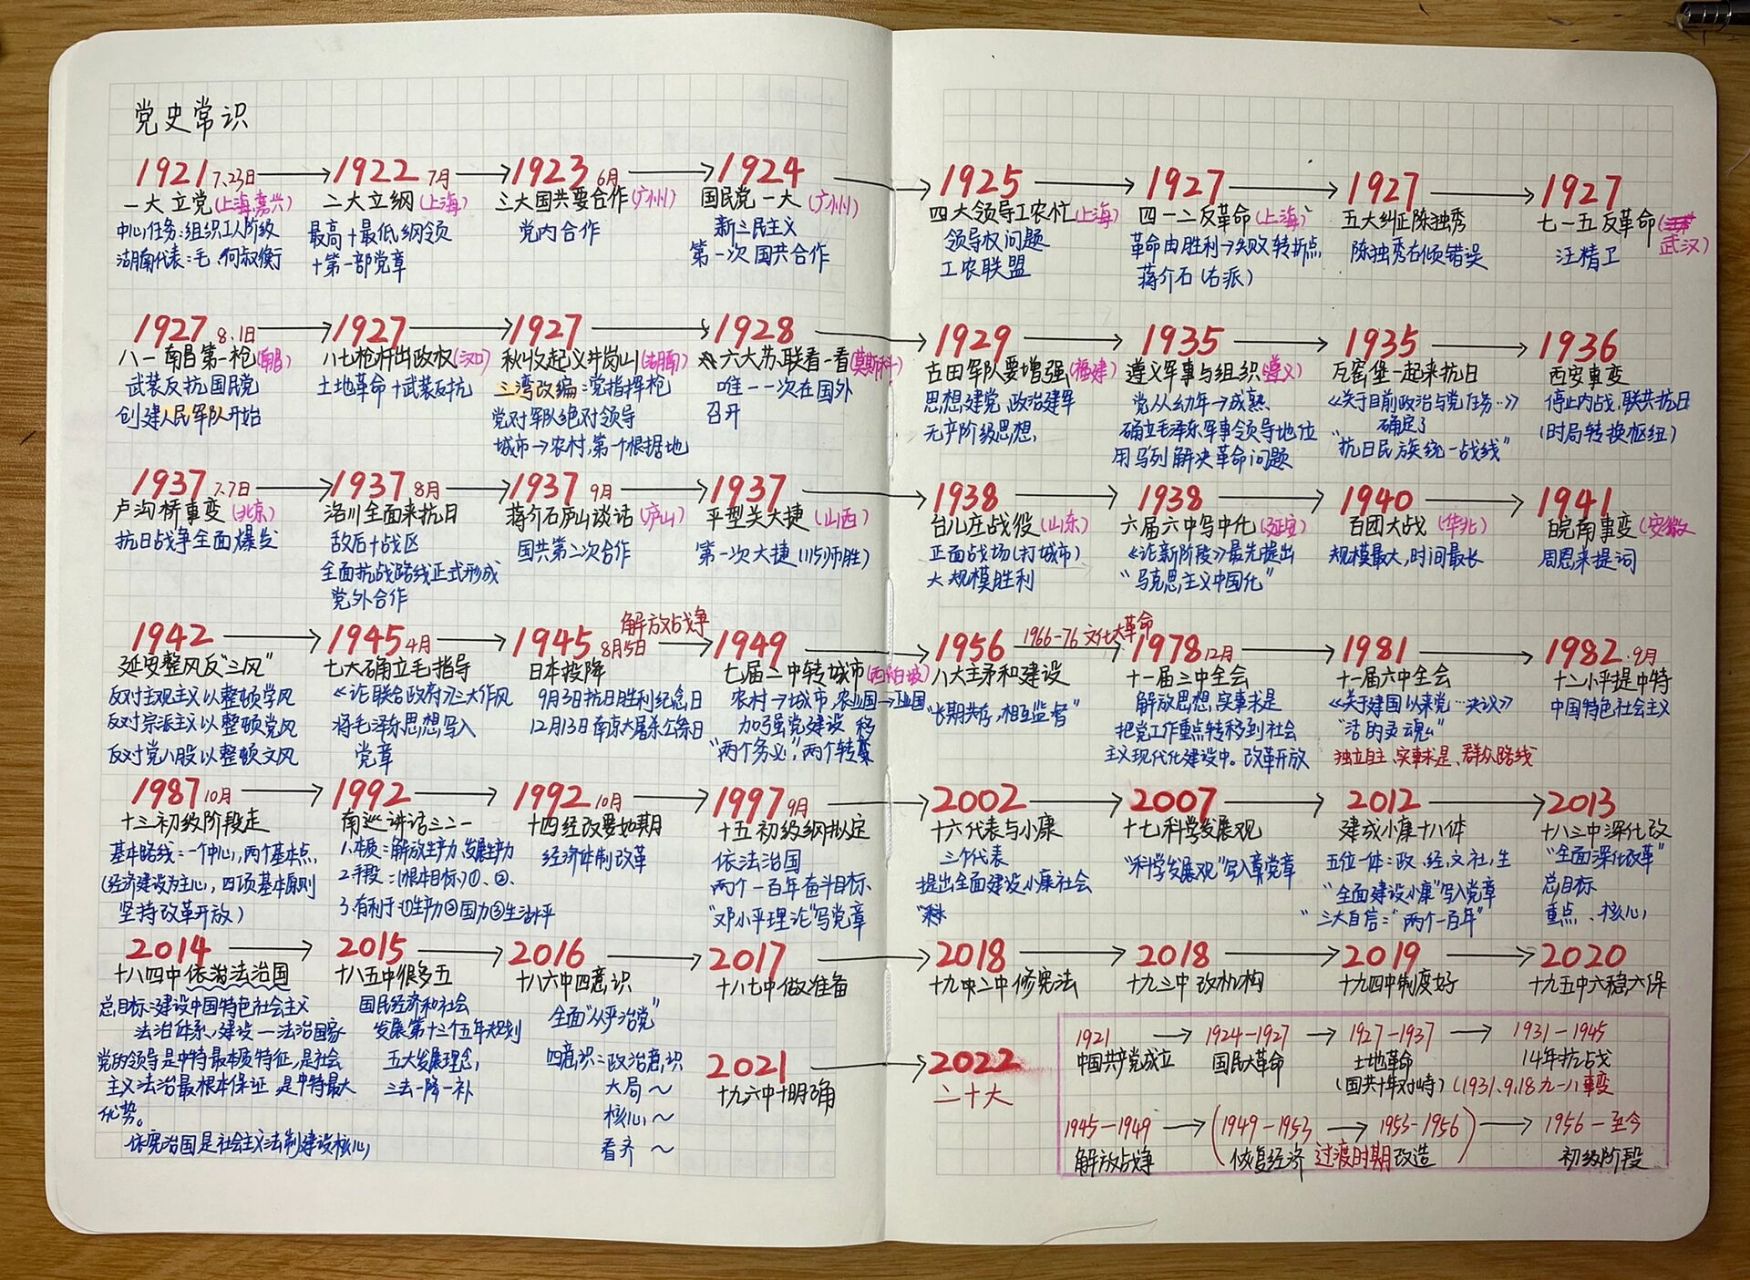 党史常识
1921 7.23日
一大立党(上海嘉兴)
中心任务:组织工人阶级
湖南代表:毛、何叔衡
1922 7月
二大立纲(上海)
最高+最低纲领
+第一部党章
1923 6月
三大国共要合作(广州)
党内合作
1924
国民党一大(广州)
新三民主义
第一次国共合作
1925
四大领导工农忙(上海)
领导权问题
工农联盟
1927
四一二反革命(上海)
革命由胜利→失败转折点
蒋介石(右派)
1927
五大纠正陈独秀
陈独秀右倾错误
1927
七一五反革命(武汉)
汪精卫
1927 8.1日
八一南昌第一枪(南昌)
武装反抗国民党
创建人民军队开始
1927
八七枪杆出政权(汉口)
土地革命+武装反抗
1927
秋收起义井岗山(湖南)
三湾改编:党指挥枪
党对军队绝对领导
城市→农村,第一个根据地
1928
六大苏联看一看(莫斯科)
唯一一次在国外
召开
1929
古田军队要增强(福建)
思想建党 政治建军
无产阶级思想,
1935
遵义军事与组织(遵义)
党从幼年→成熟
确立毛泽东军事领导地位
用马列解决革命问题
1935
瓦窑堡一起来抗日
《关于目前政治与党任务…》
确定了
"抗日民族统一战线"
1936
西安事变
停止内战,联共抗日
(时局转换枢纽)
1937 7.7日
卢沟桥事变(北京)
抗日战争全面爆发
1937 8月
洛川全面来抗日
敌后+战区
全面抗战路线正式形成
党外合作
1937 9月
蒋介石庐山谈话(庐山)
国共第二次合作
1937
平型关大捷(山西)
第一次大捷(115师胜)
1938
台儿庄战役(山东)
正面战场(打城市)
大规模胜利
1938
六届六中写中化(延安)
《论新阶段》最先提出
"马克思主义中国化"
1940
百团大战(华北)
规模最大,时间最长
1941
皖南事变(安徽)
周恩来提词
1942
延安整风反"三风"
反对主观主义以整顿学风
反对宗派主义以整顿党风
反对党八股以整顿文风
1945 4月
七大确立毛指导
《论联合政府》三大作风
将毛泽东思想写入
党章
1945 8月5日
日本投降
9月3日抗日胜利纪念日
12月13日南京大屠杀公祭日
解放战争
1949
七届二中转城市(西柏坡)
农村→城市,农业国→工业国
加强党建设
"两个务必",两个转变
1956
八大主矛和建设
"长期共存,相互监督"
1966-76 文化大革命
1978 12月
十一届三中全会
解放思想,实事求是
把党工作重点转移到社会
主义现代化建设中。改革开放
1981
十一届六中全会
《关于建国以来党…决议》
"活的灵魂"
独立自主、实事求是、群众路线
1982.9月
十二小平提中特
中国特色社会主义
1987 10月
十三初级阶段走
基本路线:一个中心,两个基本点,
(经济建设为主心,四项基本原则
坚持改革开放)
1992
南巡讲话三二一
1.本质:解放生产力、发展生产力
2.手段:(根本目标)①、②、
3.有利于:①生产力②国力③生活水平
1992 10月
十四经改要如期
经济体制改革
1997 9月
十五初级纲拟定
依法治国
两个一百年奋斗目标、
"邓小平理论"写党章
2002
十六代表与小康
三个代表
提出全面建设小康社会
2007
十七科学发展观
"科学发展观"写入章党章
2012
建成小康十八体
五位一体:政、经、文、社、生
"全面建设小康"写入党章
"三大自信:"两个一百年"
2013
十八三中深化改
"全面深化改革"
总目标
重点、核心
2014
十八四中依治法治国
总目标:建设中国特色社会主义
法治体系、建设一法治国家
党的领导是中特最本质特征,是社会
主义法治最根本保证,是中特最大
优势。
依宪治国是社会主义法制建设核心
2015
十八五中很多五
国民经济和社会
发展第十三个五年规划
五大发展理念,
三去一降一补
2016
十八六中四意识
全面"从严治党"
四意识:政治意识
大局～
核心～
看齐～
2017
十八七中做准备
2018
十九二中修宪法
2018
十九三中改机构
2019
十九四中制度好
2020
十九五中六稳六保
2021
十九六中十明确
2022
二十大
1921
中国共产党成立
1924-1927
国民大革命
1927-1937
土地革命
(国共十年对峙)
1931-1945
14年抗战
(1931.9.18九一八事变
1945-1949
解放战争
(1949-1953
恢复经济
1953-1956)
过渡时期改造
1956-至今
初级阶段